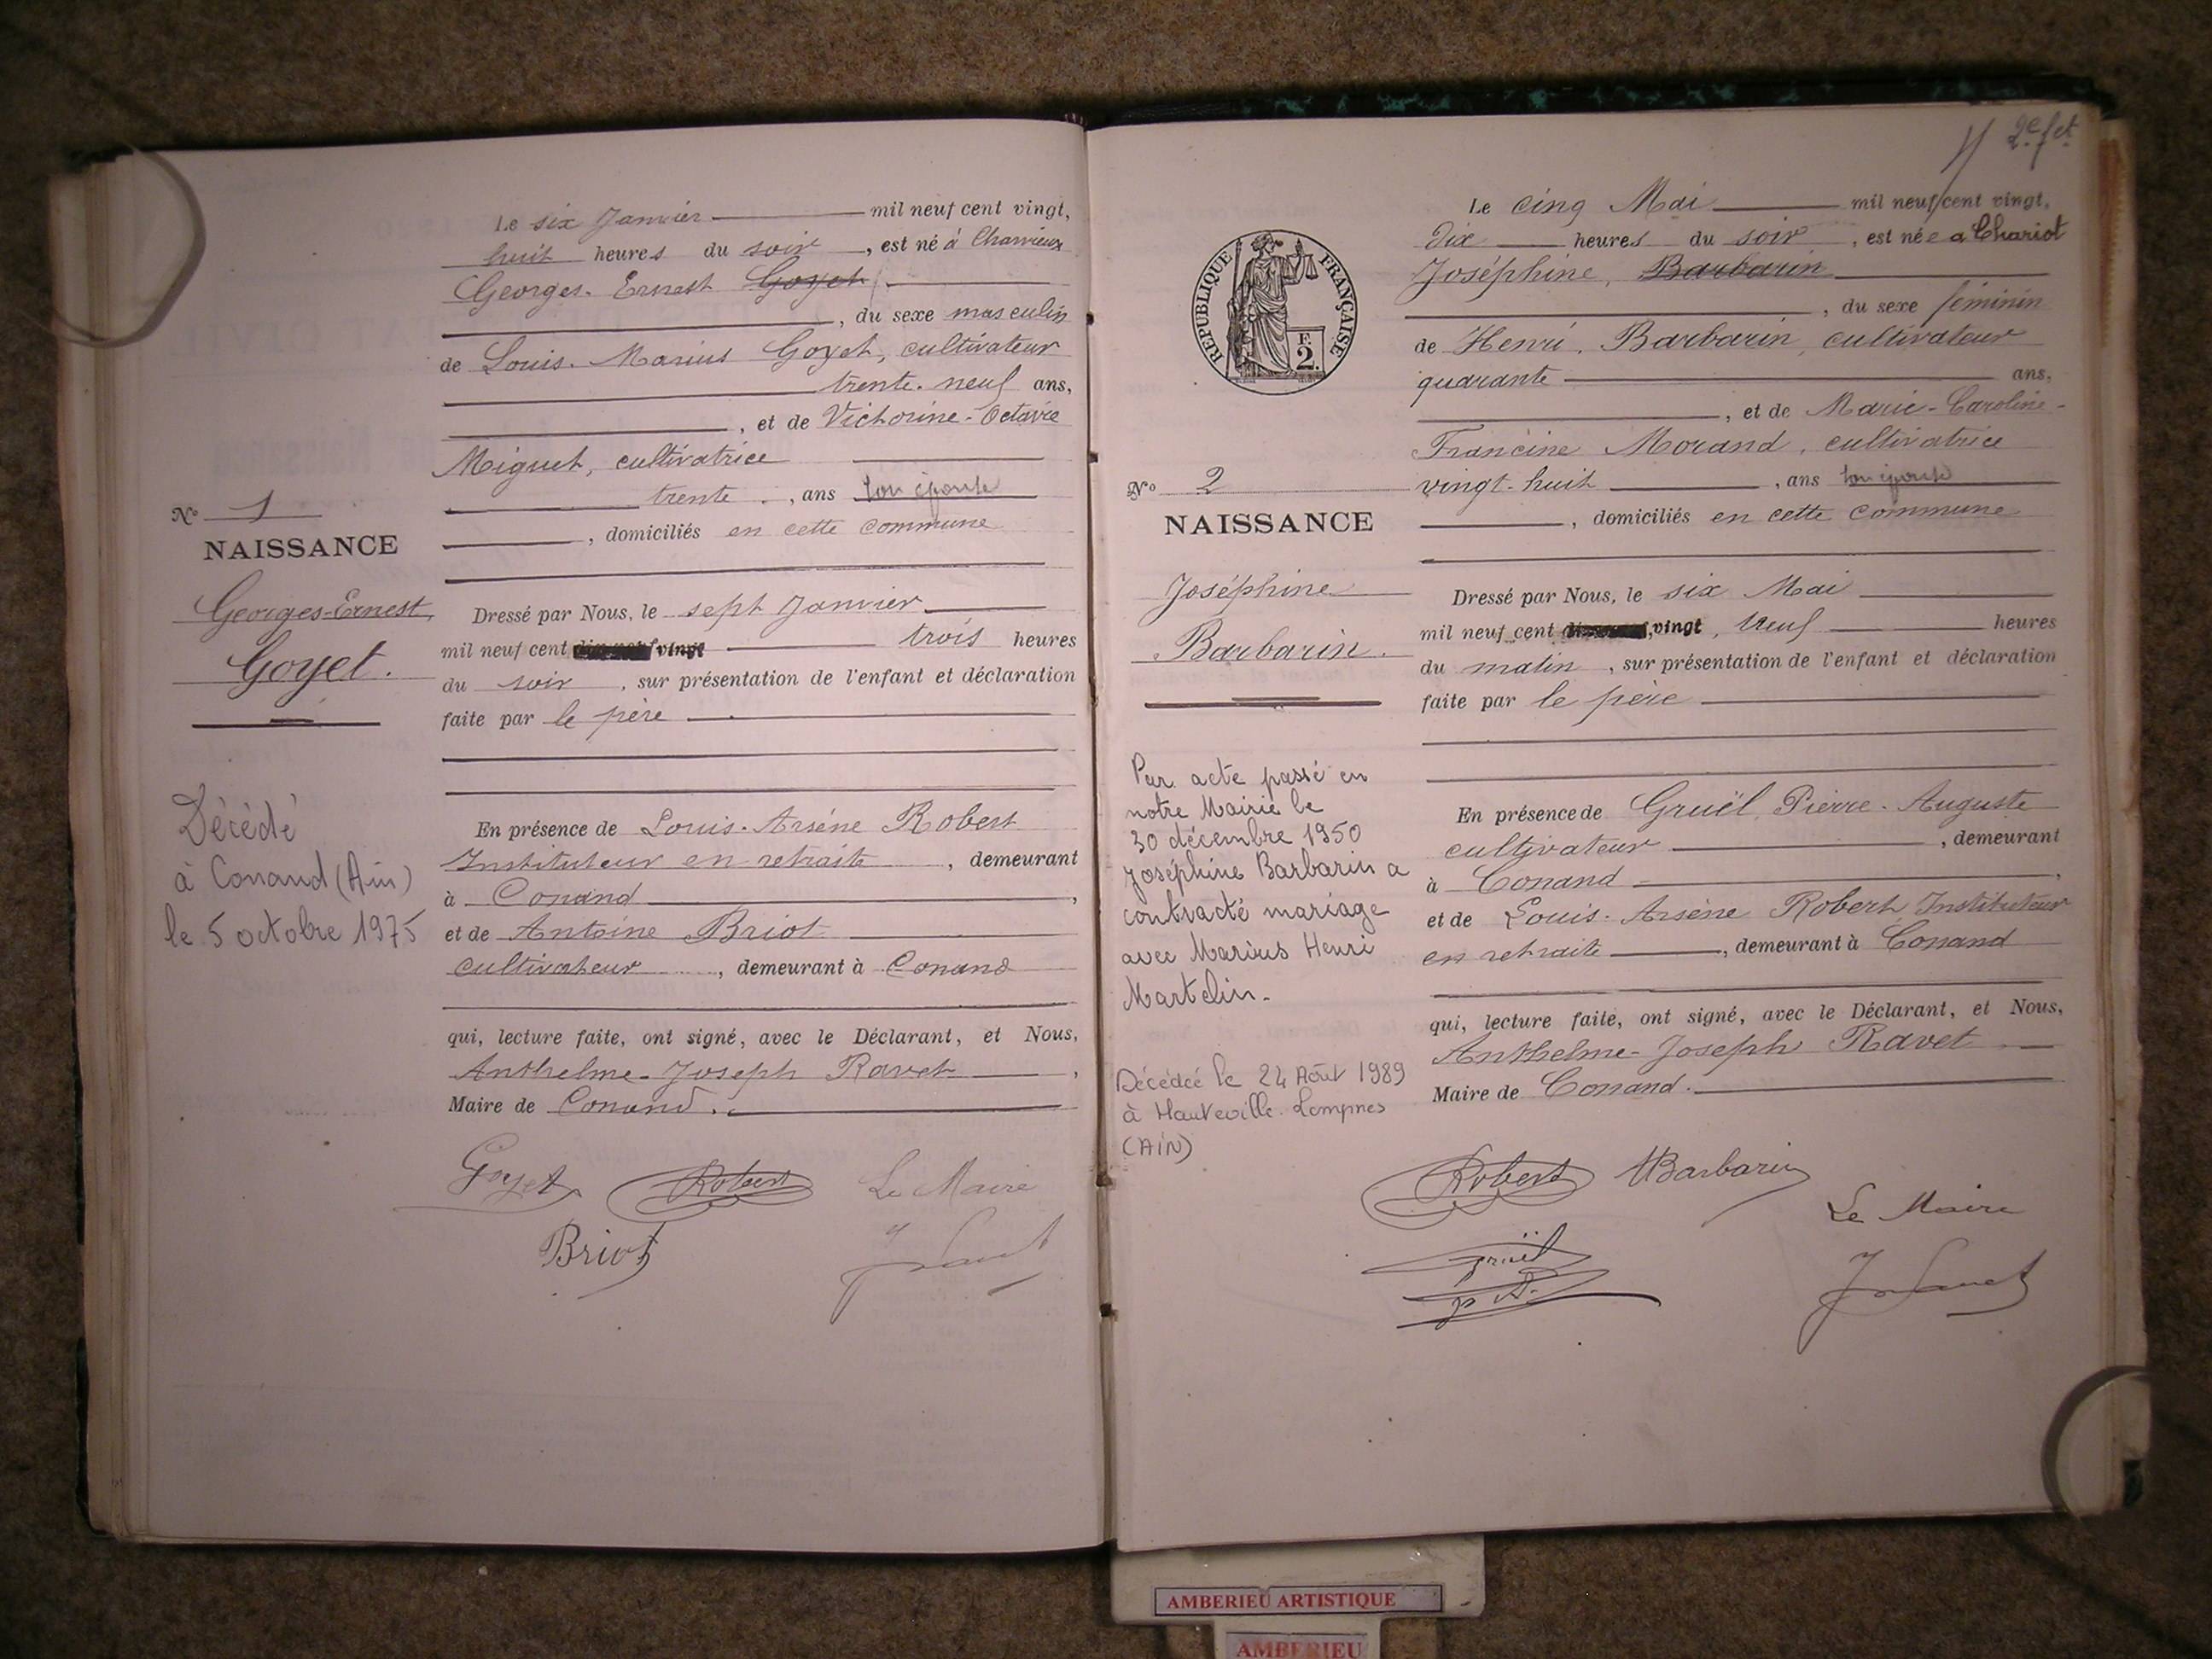 Le six Janvier mil neuf cent vingt,
huit heures du soir, est né à Charvieux
Georges-Ernest Goyet
, du sexe masculin
de Louis-Marius Goyet, cultivateur
trente-neuf ans,
, et de Victorine-Octavie
Miguet, cultivatrice
trente, ans son épouse
, domiciliés en cette commune
N° 1
NAISSANCE
Georges-Ernest
Goyet.
Dressé par Nous, le sept Janvier
mil neuf cent vingt trois heures
du soir, sur présentation de l'enfant et déclaration
faite par le père
Décédé
à Conand (Ain)
le 5 octobre 1975
En présence de Louis-Arsène Robert
Instituteur en retraite, demeurant
à Conand,
et de Antoine Briot
cultivateur, demeurant à Conand
qui, lecture faite, ont signé, avec le Déclarant, et Nous,
Anthelme-Joseph Ravet,
Maire de Conand.
Goyet Robert Le Maire
Briot JRavet
2e f.et
Le cinq Mai mil neuf cent vingt,
dix heures du soir, est née a Chariot
Joséphine, Barbarin
, du sexe féminin
de Henri, Barbarin, cultivateur
quarante ans,
, et de Marie-Caroline-
Francine Morand, cultivatrice
vingt-huit, ans son épouse
, domiciliés en cette commune
REPUBLIQUE FRANÇAISE
F.
2.
N° 2
NAISSANCE
Joséphine
Barbarin.
Dressé par Nous, le six Mai
mil neuf cent vingt, neuf heures
du matin, sur présentation de l'enfant et déclaration
faite par le père
Par acte passé en
notre Mairie le
30 décembre 1950
Joséphine Barbarin a
contracté mariage
avec Marius Henri
Martelin.
Décédée le 24 Août 1989
à Hauteville-Lompnes
(AIN)
En présence de Gruël, Pierre-Auguste
cultivateur, demeurant
à Conand,
et de Louis-Arsène Robert Instituteur
en retraite, demeurant à Conand
qui, lecture faite, ont signé, avec le Déclarant, et Nous,
Anthelme-Joseph Ravet
Maire de Conand.
Robert HBarbarin
Le Maire
Gruël
p A.
JRavet
AMBERIEU ARTISTIQUE
AMBERIEU